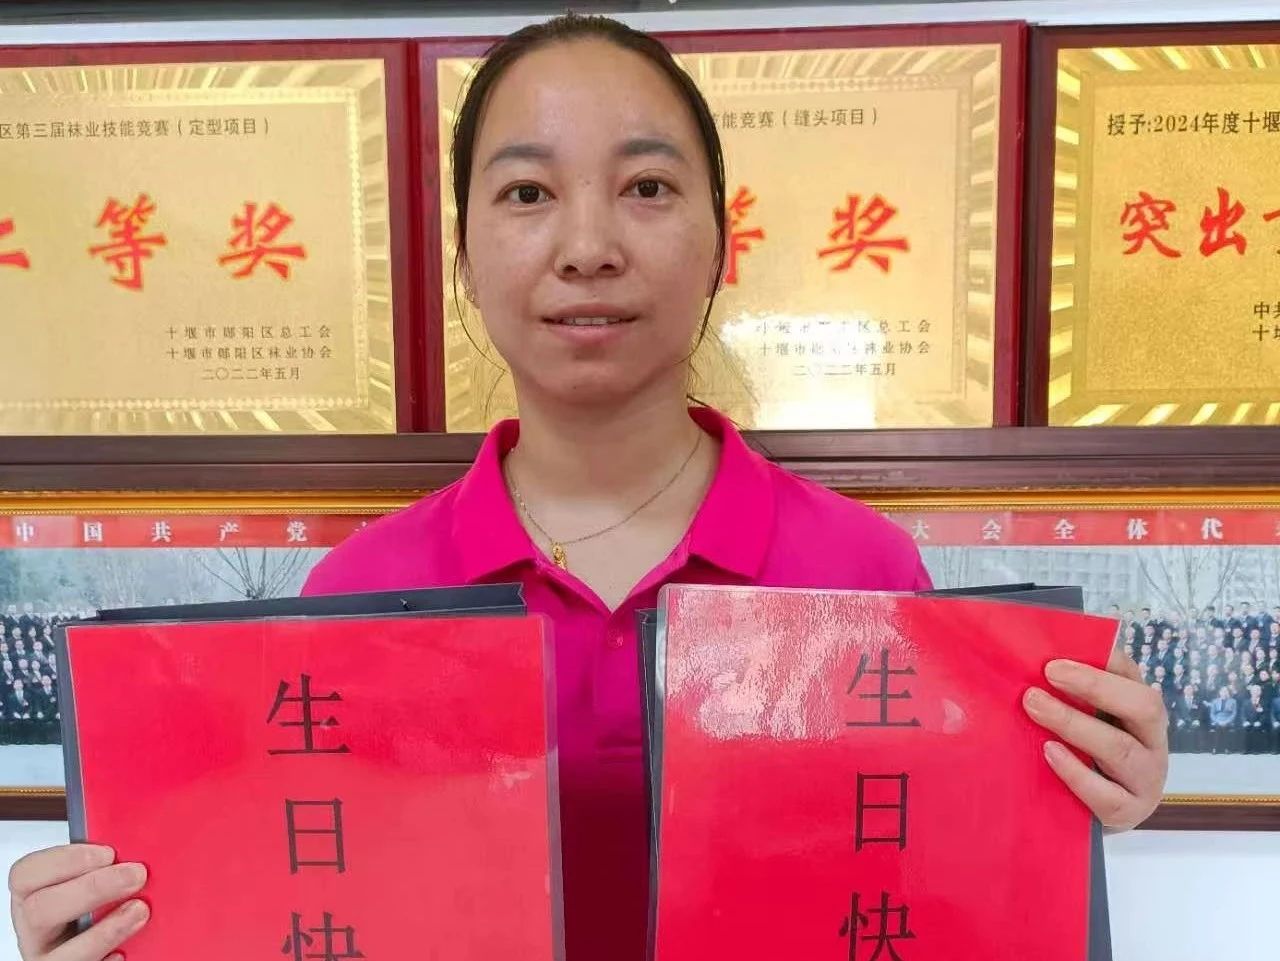 区第三届袜业技能竞赛(定型项目)
二等奖
十堰市郧阳区总工会
十堰市郧阳区袜业协会
二〇二二年五月
技能竞赛(缝头项目)
等奖
十堰市郧阳区总工会
十堰市郧阳区袜业协会
二〇二二年五月
授予:2024年度十堰
突出
中共
十堰
中国共产党
大会全体代
生日快
生日快